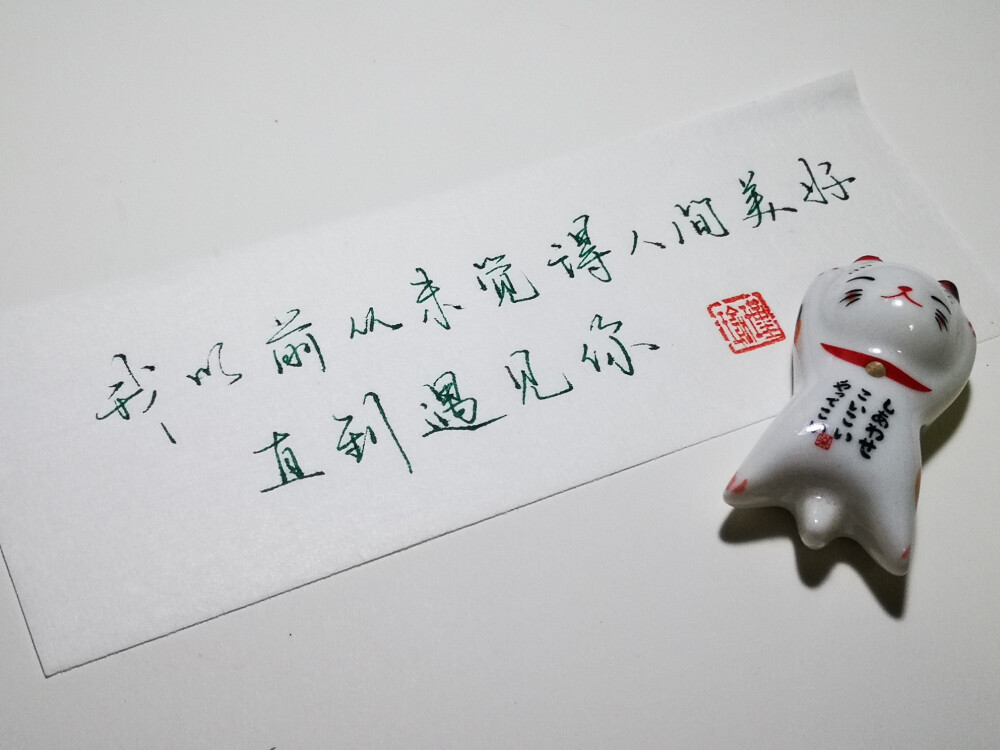 我以前从未觉得人间美好
直到遇见你
しあわせ
こいこい
やってこい